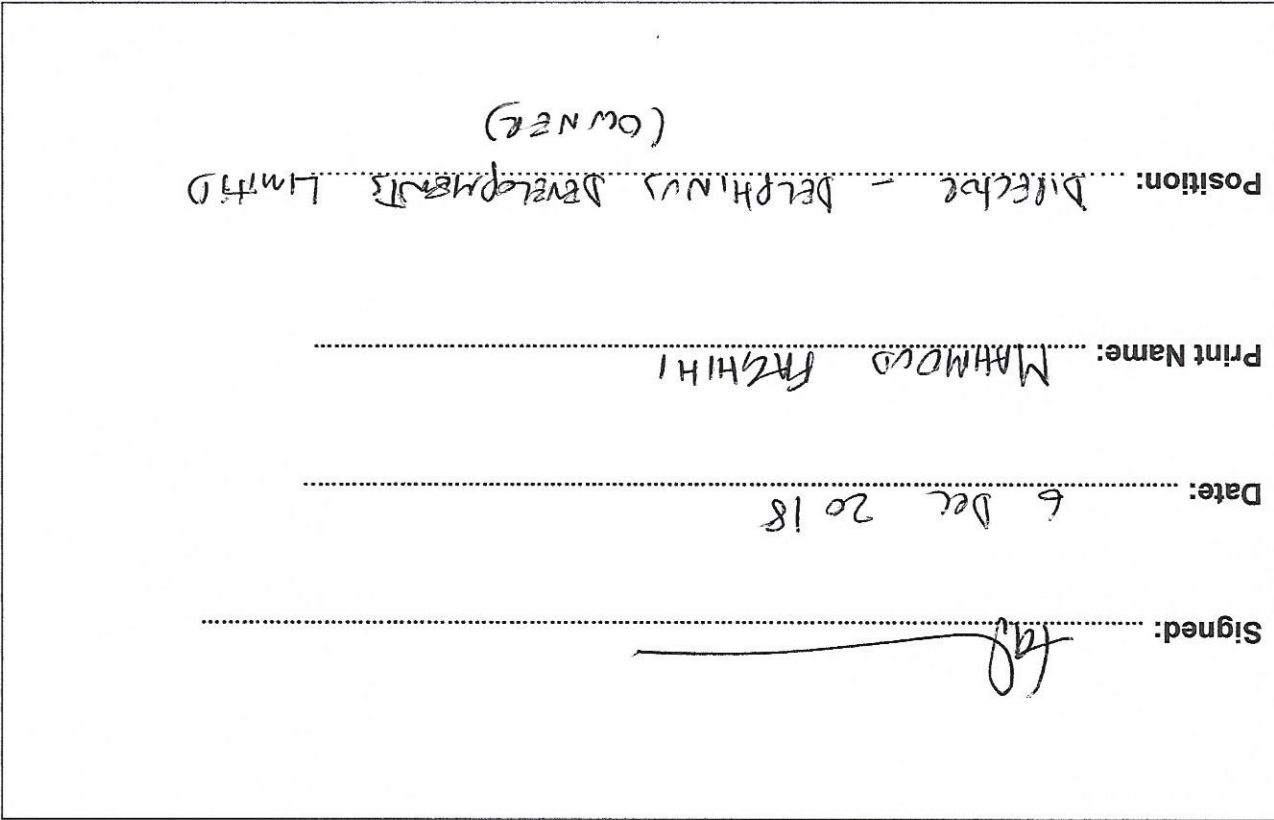 Signed:
Date: 6 Dec 2018
Print Name: MAHMOUD FAGHIHI
Position: DIRECTOR - DELPHINUS DEVELOPMENTS LIMITED
(OWNER)